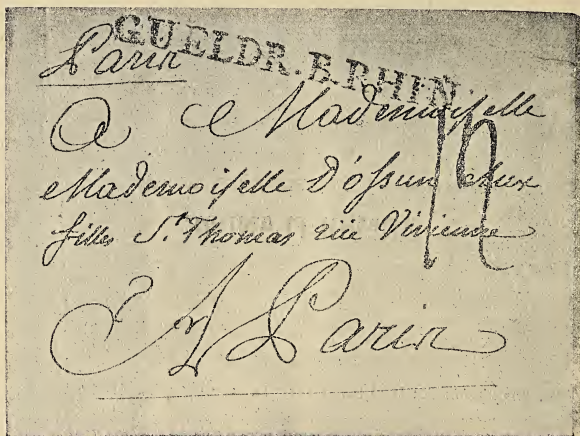 GUELDR. B. RHIN
Paris
A Mademoiselle
Mademoiselle D'ossun aux
filles St. Thomas rüe Vivienne
A Paris